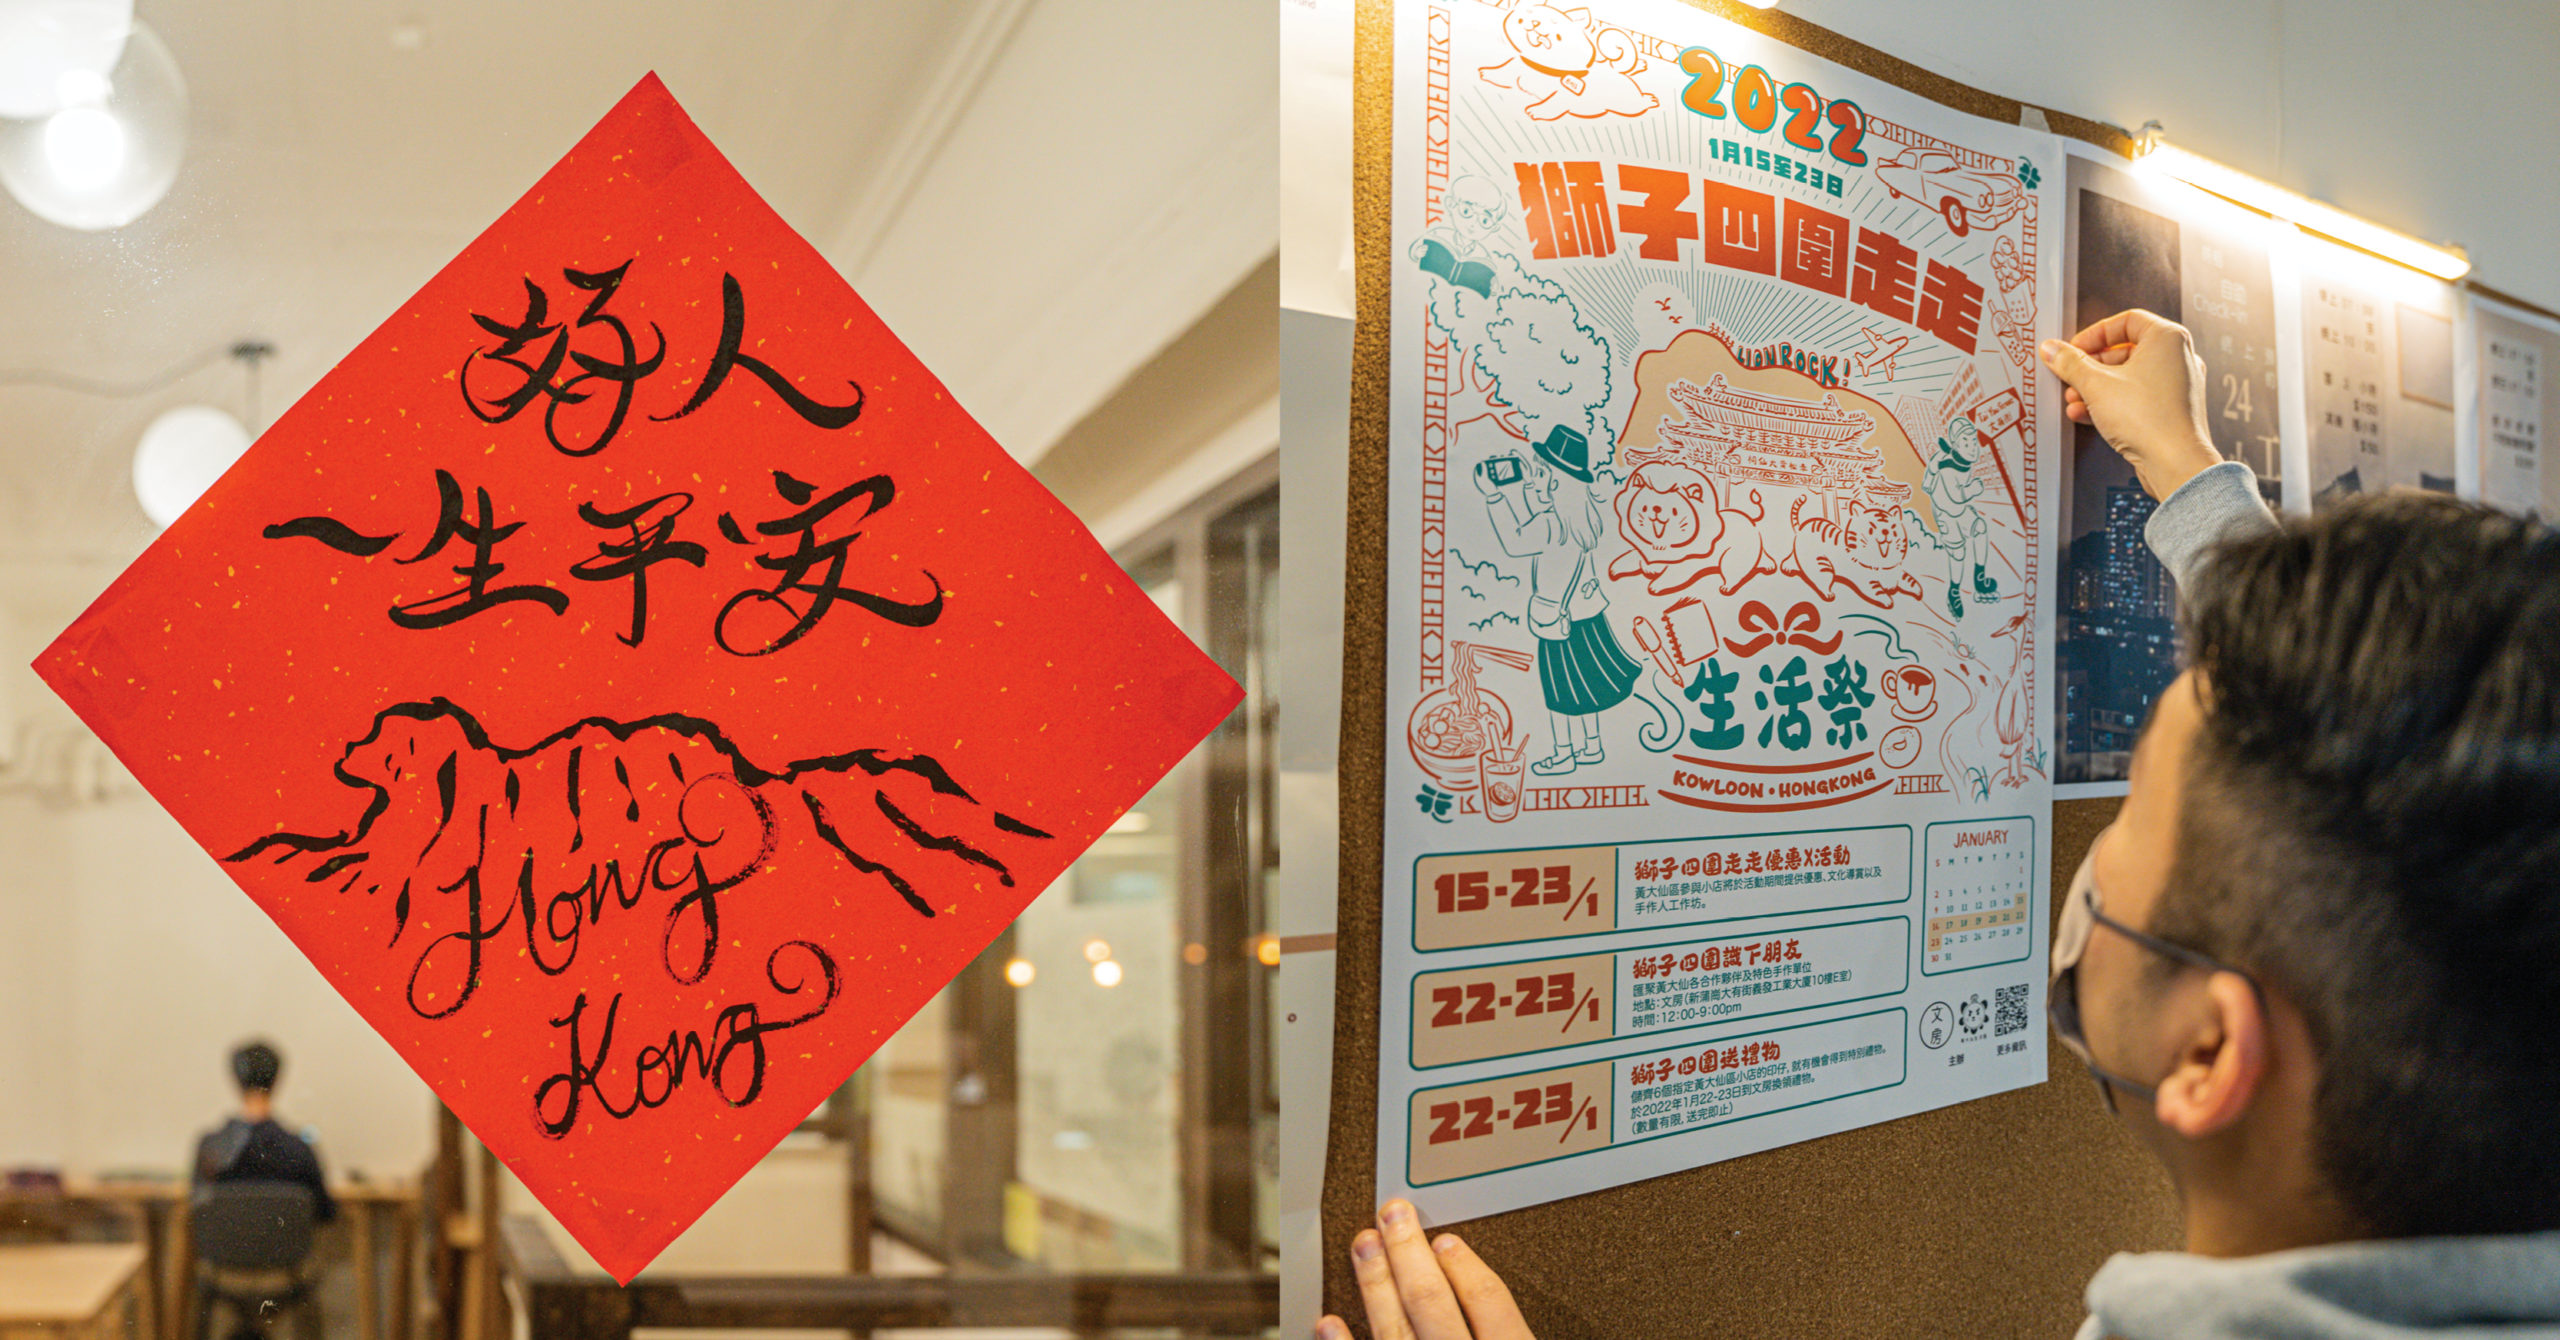 好人
一生平安
Hong
Kong
2022
1月15至23日
獅子四圍走走
LION ROCK!
生活祭
KOWLOON • HONGKONG
15-23/1
獅子四圍走走優惠X活動
黃大仙區參與小店將於活動期間提供優惠、文化導賞以及
手作人工作坊。
22-23/1
獅子四圍識下朋友
匯聚黃大仙各合作夥伴及特色手作單位
地點：文房（新蒲崗大有街義發工業大廈10樓E室）
時間：12:00-9:00pm
22-23/1
獅子四圍送禮物
儲齊6個指定黃大仙區小店的印仔，就有機會得到特別禮物。
於2022年1月22-23日到文房換領禮物。
（數量有限，送完即止）
JANUARY
S M T W T F S
1
2 3 4 5 6 7 8
9 10 11 12 13 14 15
16 17 18 19 20 21 22
23 24 25 26 27 28 29
30 31
文房
主辦
更多資訊
Check-in
24